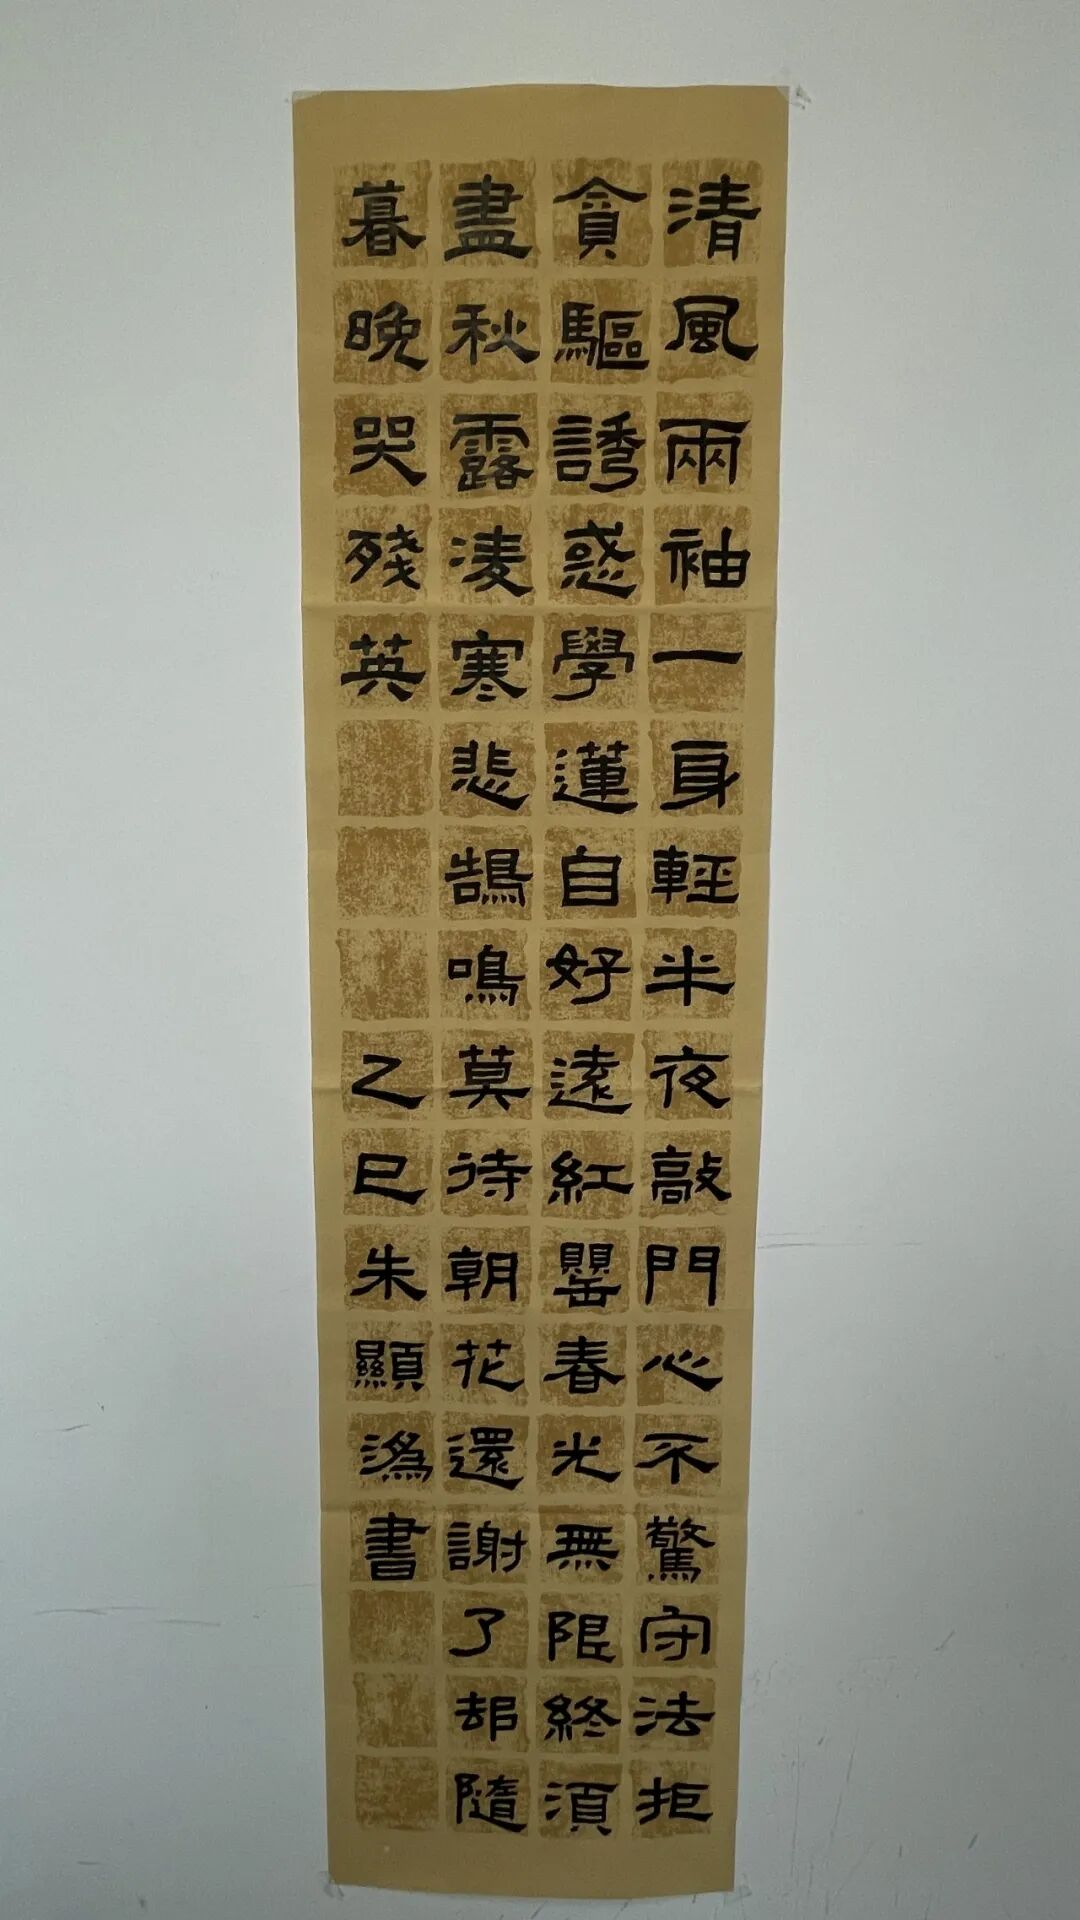 清風兩袖一身輕半夜敲門心不驚守法拒
貪驅誘惑學蓮自好遠紅罌春光無限終須
盡秋露淩寒悲鵠鳴莫待朝花還謝了却隨
暮晚哭殘英
乙巳朱顯潙書